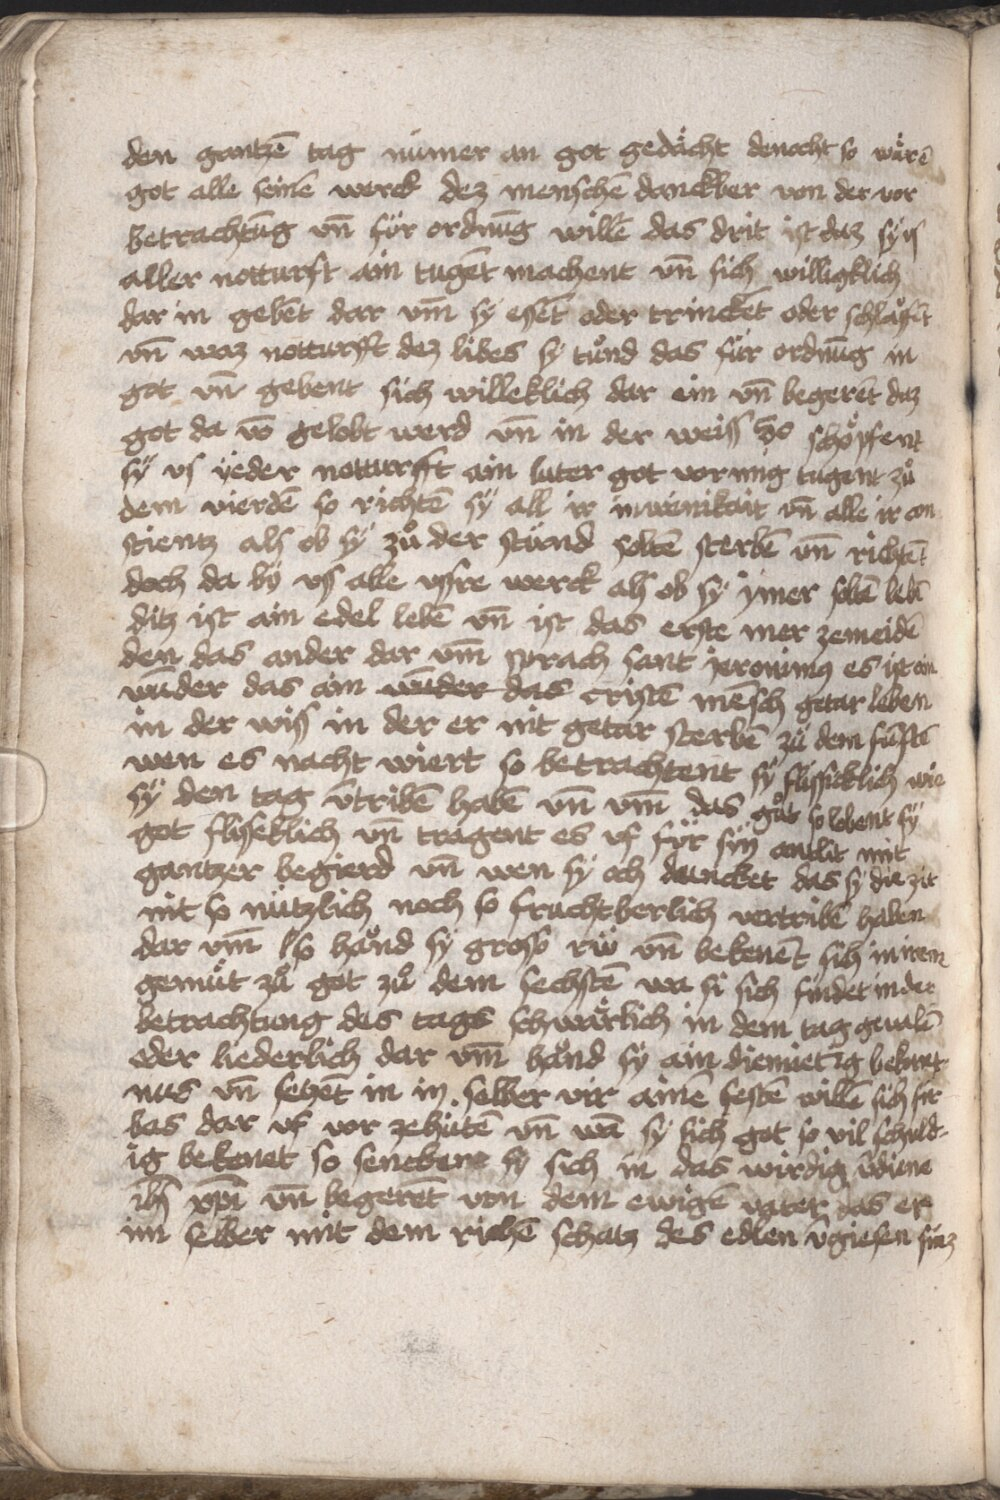 den gantzē tag nūmer an got gedācht denocht so wårē
got alle seinē werck dez menschē danckber von der vor
betrachtūg vn̄ für ordnūg willē das drit ist daz sy vs
aller notturft ain tugēt machent vn̄ sich willigklich
dar in gebēt dar vm̄ sy essēt oder trinckēt oder schlåfēt
vn̄ waz notturfft dez libes sy tůnd das für ordnūg in
got vn̄ gebent sich willeklich dar ein vn̄ begerēt daz
got da vō gelobt werd vn̄ in der weiss so schöpfent
sÿ vs ÿeder notturfft ain luter got vormig tugent zů
dem vierdē so richtē sÿ all ir innrikait vn̄ alle ir con
scientz als ob sÿ zů der stund soltē sterbē vn̄ richtēt
doch da bÿ vs alle vssre werck als ob sÿ ÿmer soltē lebē
ditz ist ain edel lebē vn̄ ist das erste mer zemeidē
den das ander dar vm̄ sprach sant jeronimꝰ es ist ain
wūder das ain wūder das cristē mēsch getar leben
in der wiss in der er nit getar sterbē zů dem fünftē
wen es nacht wiert so betrachtent sÿ flissicklich wie
sÿ den tag v̄tribē habē vn̄ vm̄ das gůt so lobent sÿ
got flisseklich vn̄ tragent es vf für sin antlit mit
gantzer begierd vn̄ wen sÿ och dancket das sÿ die zit
nit so nützlich noch so fruchtberlich vertribē haben
dar vm̄ so hånd sÿ grosso rüw vn̄ bekenēt sich in irem
gemüt zů got zů dem sechstē wa si sich findet in der
betrachtung des tags schwårlich in dem tag geualē
oder liederlich dar vm̄ hånd sÿ ain diemietig bekant
nus vn̄ setzēt in in selber vir ainē festē willē sich für
bas dar vf vor zehütē vn̄ wā sÿ sich got so vil schuld-
ig bekenet so senckenᵉ sÿ sich in das wirdig v̄diene
ihū xp̄i vn̄ begerēt von dem ewigē vater das er
im selber mit dem richē schatz des edlen v̄giesen sinz